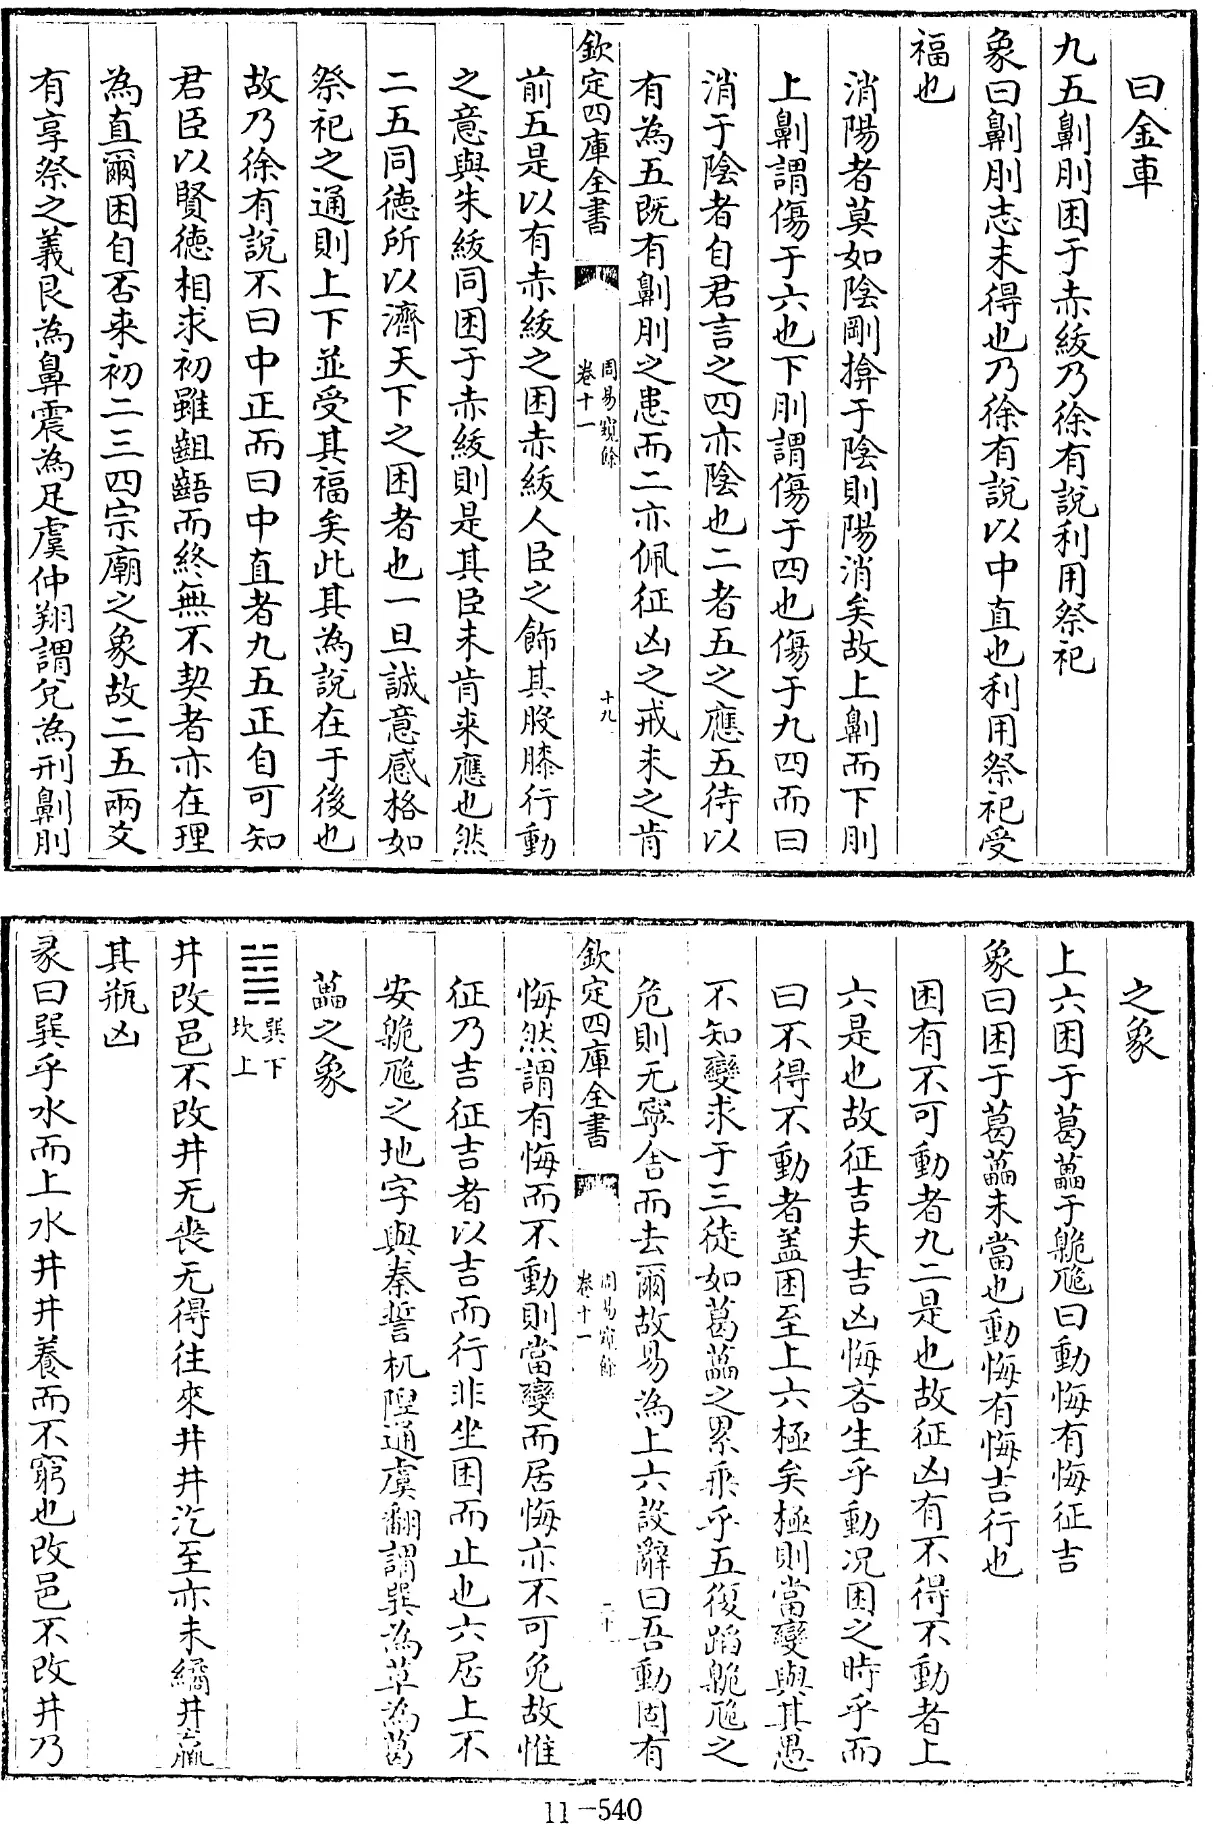 曰金車
九五劓刖困于赤紱乃徐有說利用祭祀
象曰劓刖志未得也乃徐有說以中直也利用祭祀受
福也
消陽者莫如陰剛揜于陰則陽消矣故上劓而下刖
上劓謂傷于六也下刖謂傷于四也傷于九四而曰
消于陰者自君言之四亦陰也二者五之應五待以
有為五既有劓刖之患而二亦佩征凶之戒未之肯
欽定四庫全書
周易窺餘
卷十一
十九
前五是以有赤紱之困赤紱人臣之飾其股膝行動
之意與朱紱同困于赤紱則是其臣未肯来應也然
二五同德所以濟天下之困者也一旦誠意感格如
祭祀之通則上下並受其福矣此其為說在于後也
故乃徐有說不曰中正而曰中直者九五正自可知
君臣以賢德相求初雖齟齬而終無不契者亦在理
為直爾困自否来初二三四宗廟之象故二五兩爻
有享祭之義艮為鼻震為足虞仲翔謂兌為刑劓刖
之象
上六困于葛藟于臲卼曰動悔有悔征吉
象曰困于葛藟未當也動悔有悔吉行也
困有不可動者九二是也故征凶有不得不動者上
六是也故征吉夫吉凶悔吝生乎動况困之時乎而
曰不得不動者蓋困至上六極矣極則當變與其愚
不知變求于三徒如葛藟之累乘乎五復蹈臲卼之
危則无寧舎而去爾故易為上六設辭曰吾動固有
欽定四庫全書
周易窺餘
卷十一
二十
悔然謂有悔而不動則當變而居悔亦不可免故惟
征乃吉征吉者以吉而行非坐困而止也六居上不
安臲卼之地字與秦誓杌隉通虞翻謂巽為草為葛
藟之象
䷯巽下
坎上
井改邑不改井无喪无得往來井井汔至亦未繘井羸
其瓶凶
彖曰巽乎水而上水井井養而不窮也改邑不改井乃
11-540